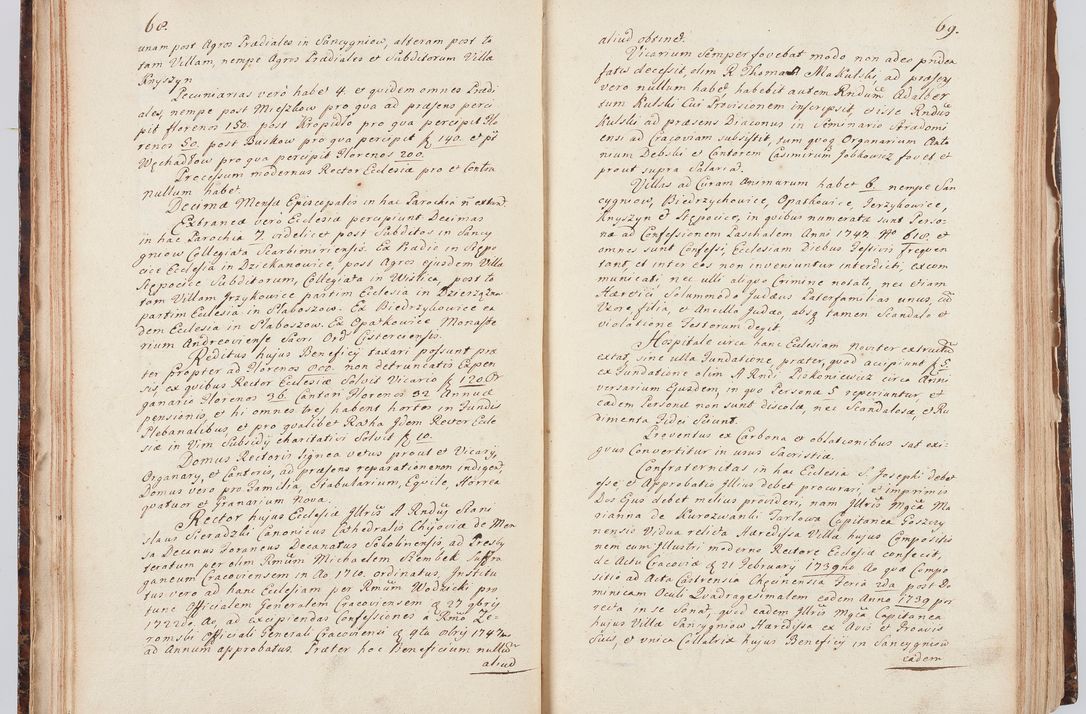 68.
unam post Agros Prædiales in Sancygniow, alteram post to
tam Villam, nempe Agros Prædiales et Subditorum Villa
Knyszyn
Pecuniarias verò habet 4. et quidem omnes Prædi
ales, nempe post Mieszkow pro qua ad præsens perci
pit florenos 150. post Kropidło pro qua percipit flo
renos 50. post Buskow pro qua percipit f 140. et pt
Węchadłow pro qua percipit florenos 200.
Processum modernus Rector Ecclesiæ pro et Contra
nullum habet.
Decimæ Mensæ Episcopalis in hac Parochia ñ extant
Extraneæ verò Ecclesiæ percipiunt Decimas
in hac Parochia 7. videlicet post Subditos in Sancy
gniow Collegiata Scarbimiriensis. Ex Prædio in Stępo
cice Ecclesia in Dziekanowice, post Agros ejusdem Villæ
Stępocice Subditorum, Collegiata in Wislica, post to
tam Villam Jrzykowice partim Ecclesia in Dzierążna
partim Ecclesia in Słaboszow. Ex Biedrzychowice ea
dem Ecclesia in Słaboszow. Ex Opatkowice Monaste
rium Andreoviense Sacri Ord: Cisterciensis.
Reditus hujus Beneficij taxari possunt præ
ter propter ad florenos 800. non detruncatis Expen
sis ex quibus Rector Ecclesiæ Solvit Vicario f 120 Or
ganario florenos 36. Cantori florenos 32. Annuæ
pensionis, et hi omnes tres habent hortos in fundis
Plebanalibus, et pro qualibet Ratha Jdem Rector Eccle
siæ in Vim Subsidij charitativi Solvit f 10.
Domus Rectoris lignea vetus prout et Vicarij,
Organarij, et Cantoris, ad præsens reparationem indigent,
Domus vero pro Familia, Stabularium, Equile, Horrea
quatuor et Granarium Nova.
Rector hujus Ecclesiæ Jllris A Rndus Stani
slaus Sieradzki Canonicus Cathedralis Chijoviæ de Mon
sa Decanus foraneus Decanatus Sokolinensis, ad Presby
teratum per olim Rmum Michaelem Szembek Suffra
ganeum Cracoviensem in Ao 1710. ordinatus. Institu
tus vero ad hanc Ecclesiam per Rmum Wodzicki pro
tunc officialem Generalem Cracoviensem d 27 9bris
1722do Ao, ad excipiendas Confessiones a Rmo Ze-
romski Officiali Generali Cracoviensi d 9ta 8bris 1747mo
ad Annum approbatus. Præter hoc Beneficium nullum
aliud
69.
aliud obtinet.
Vicarium Semper fovebat modo non adeo pridem
fatis decessit, olim R. Thomas Makulski, ad præsens
vero nullum habet, habebit autem Rndum Adalber
tum Kulski Cui Provisionem inscripsit, et iste Rndus
Kulski ad præsens Diaconus in Seminario Stradomi
ensi ad Cracoviam subsistit, tum quoq Organarium Anto
nium Debski et Cantorem Casimirum Jobkowicz fovet et
prout supra Salariat.
Villas ad Curam Animarum habet 6. nempe San
cygniow, Biedrzychowice, Opatkowice, Jerzykowice,
Knyszyn et Stępocice, in quibus numeratæ sunt Perso-
næ ad Confessionem Paschalem Anni 1747 No 618. et
omnes sunt Confessi, Ecclesiam Diebus festivis frequen
tant, et inter eos non inveniuntur interdicti, excom
municati, nec ulli aliquo Crimine notati, nec etiam
Hæretici Solummodo Judæus Paterfamilias unus, cũ
Uxore, filia, et Ancilla Judæa, absq tamen Scandalo et
violatione festorum Degit.
Hospitale circa hanc Ecclesiam Noviter extructũ
extat, sine ulla fundatione, præter, quod accipiunt f 5
ex fundatione olim A Rndi Piskoniewicz circa Anni
versarium Ejusdem, in quo Personæ 5 reperiuntur, et
eadem Personæ non sunt discolæ, nec Scandalosæ, et Ru
dimenta fidei Sciunt.
Proventus ex Carbona et oblationibus sat exi-
guus Convertitur in usus Sacristiæ.
Confraternitas in hac Ecclesia S. Josephi debet
esse et Approbatio Jllius debet procurari, et inprimis
Dos Ejus debet melius provideri, nam Jllris Mgca Ma
rianna de Kurozwanki Tarlowa Capitanea Goszczy
nensis Vidua relicta Hæredissa Villæ hujus Composicio
nem cum Jllustri moderno Rectore Ecclesiæ confecit,
de Actu Cracoviæ d 21 February 1739no Ao qua Compo
sitio ad Acta Castrensia Chęcinensia feria 2da post Do
minicam Oculi Quadragesimalem eadem Anno 1739 por
recta in se Sonat, quod eadem Jllris Mgca Capitanea
hujus Villæ Sancygniow Hæredissa ex Avis et Proavis
Suis, et unica Collatrix hujus Beneficij in Sancygniow
eadem